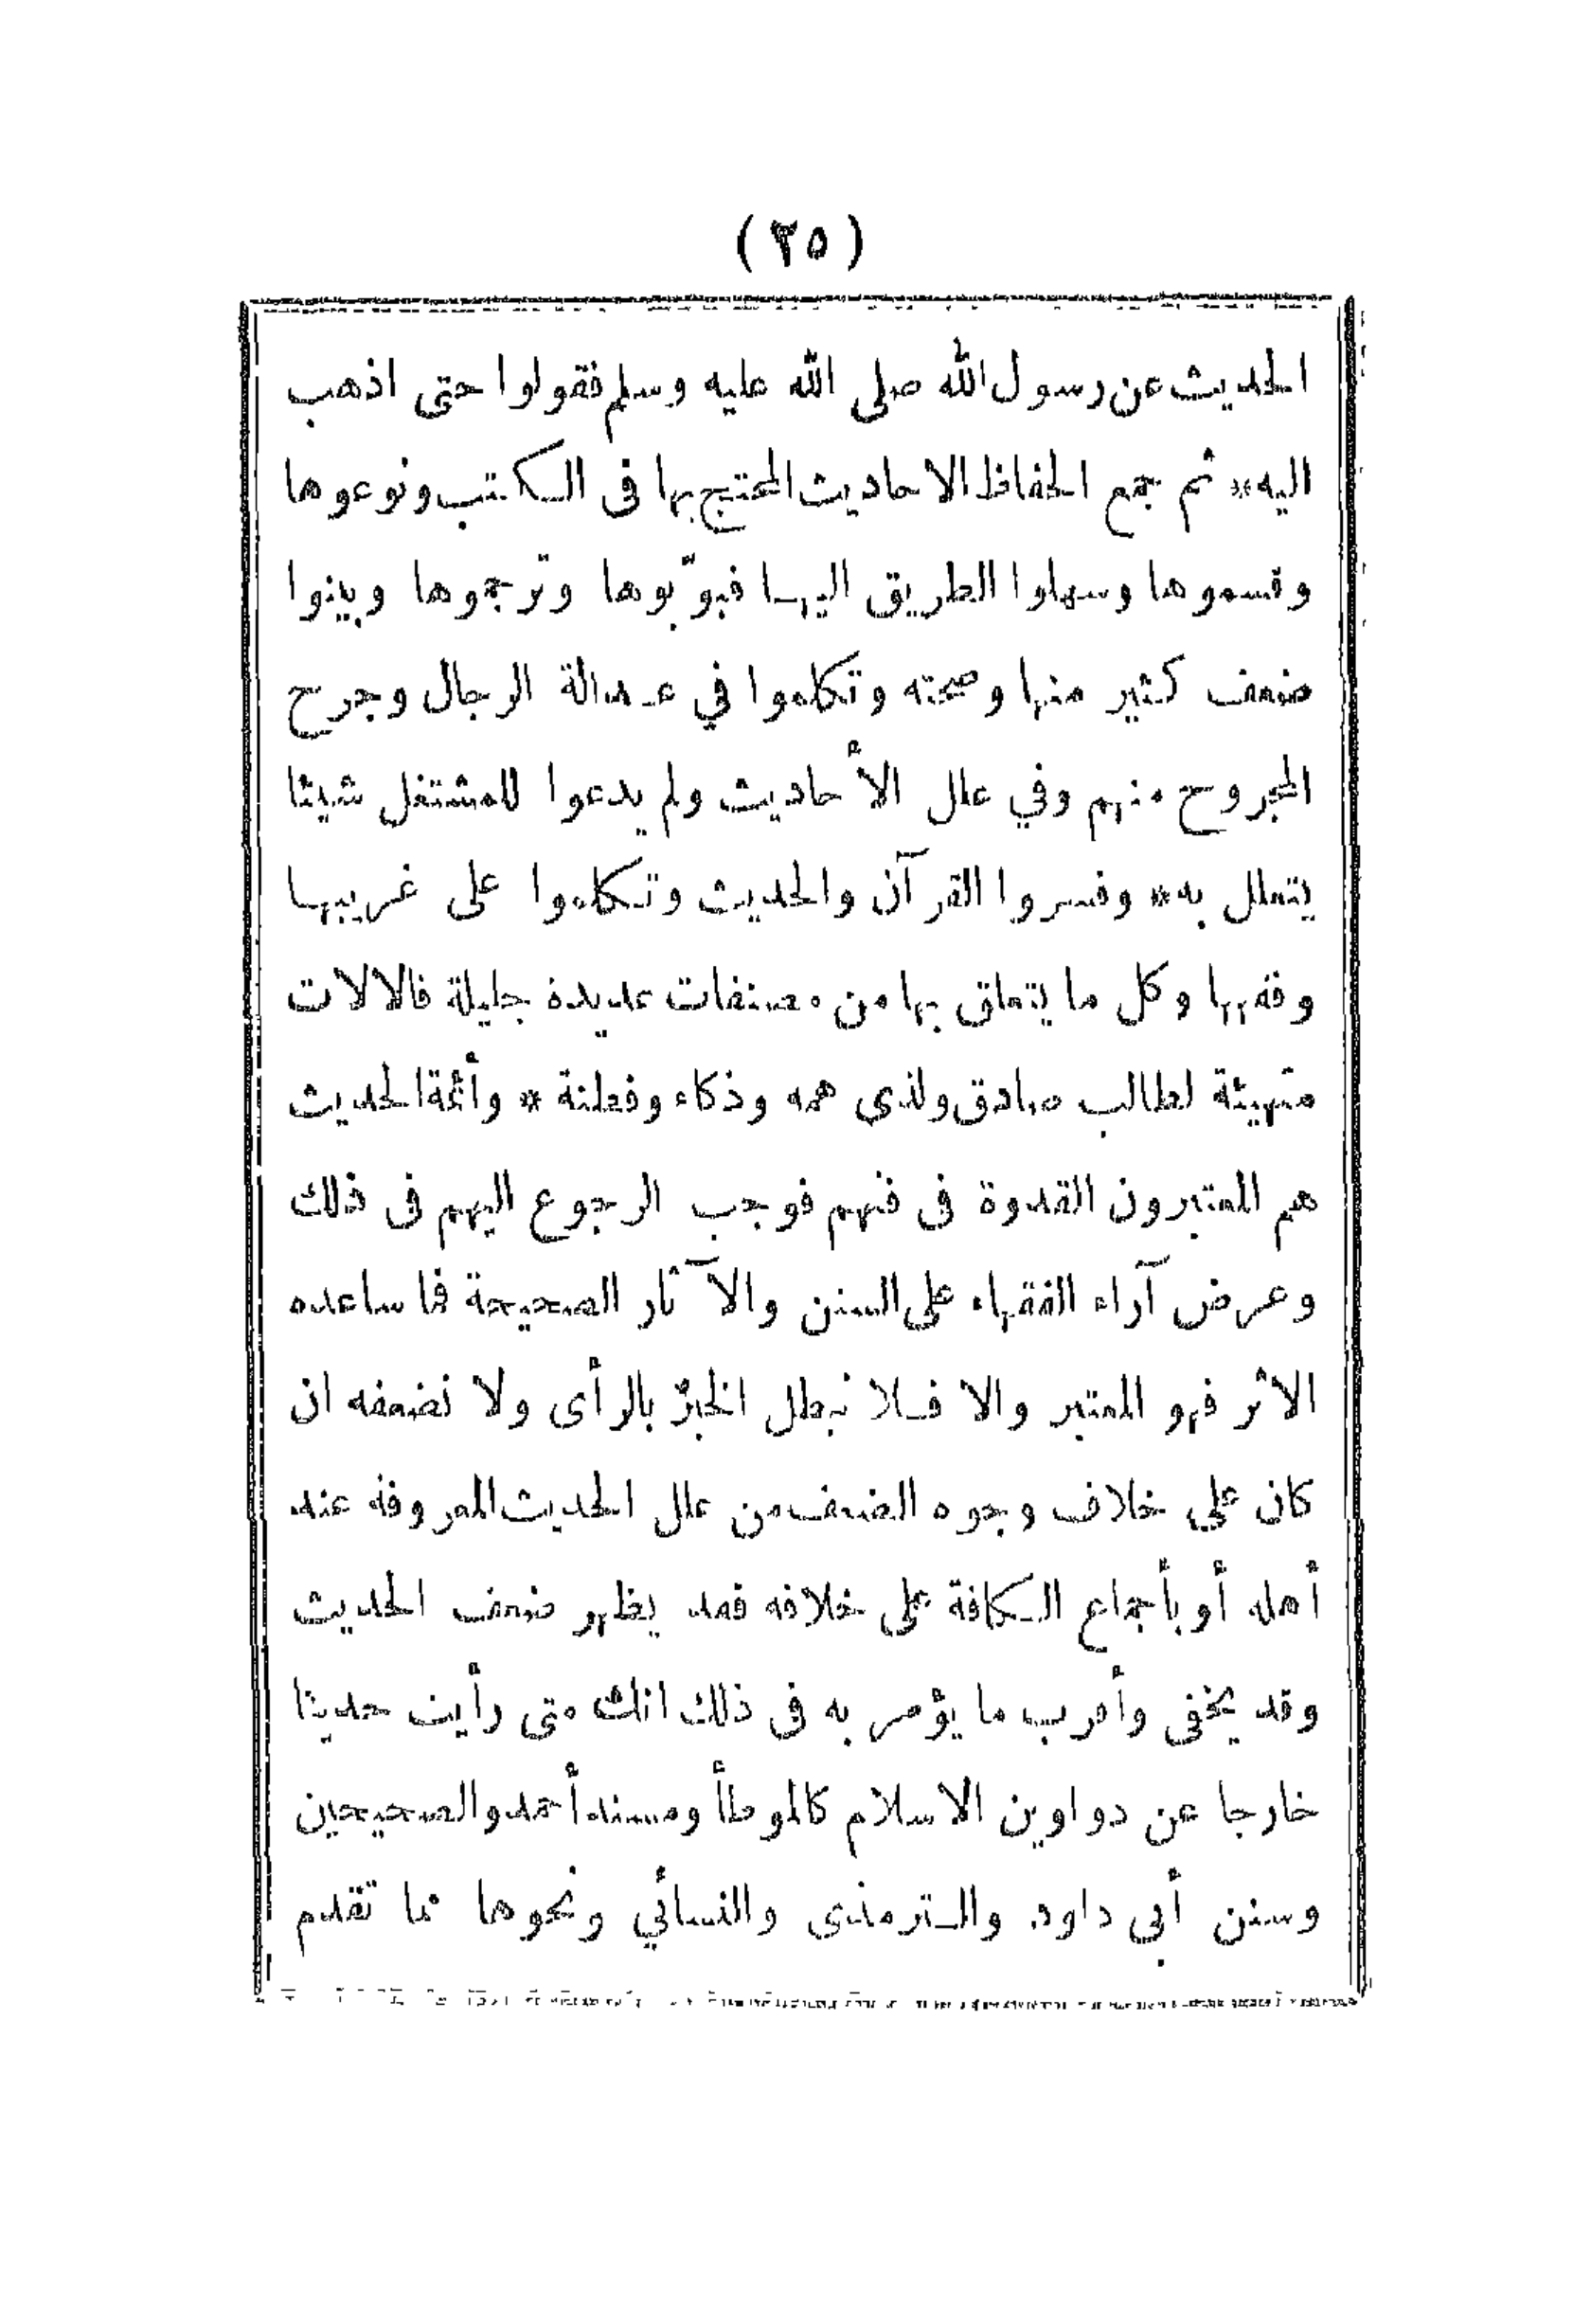 ( ٢٥ )
الحديث عن رسول الله صلى الله عليه وسلم فقولوا حتى اذهب
اليه * ثم جمع الحفاظ الاحاديث المحتج بها فى الكتب ونوعوها
وقسموها وسهلوا الطريق اليها فبوّبوها وترجموها وبينوا
ضعف كثير منها وصحته وتكلموا في عدالة الرجال وجرح
المجروح منهم وفي علل الأحاديث ولم يدعوا للمشتغل شيئا
يتعلل به * وفسروا القرآن والحديث وتكلموا على غريبها
وفقهها وكل ما يتعلق بها من مصنفات عديدة جليلة فالالات
متهيئة لطالب صادق ولذى همه وذكاء وفطنة * وأئمة الحديث
هم المعتبرون القدوة فى فنهم فوجب الرجوع اليهم فى ذلك
وعرض آراء الفقهاء على السنن والآثار الصحيحة فما ساعده
الاثر فهو المعتبر والا فلا نبطل الخبر بالرأى ولا نضعفه ان
كان على خلاف وجوه الضعف من علل الحديث المعروفه عند
أهله أو بأجماع الكافة على خلافه فقد يظهر ضعف الحديث
وقد يخفى وأقرب ما يؤمر به فى ذلك انك متى رأيت حديثا
خارجا عن دواوين الاسلام كالموطأ ومسند أحمد والصحيحين
وسنن أبى داود والترمذى والنسائي ونحوها مما تقدم